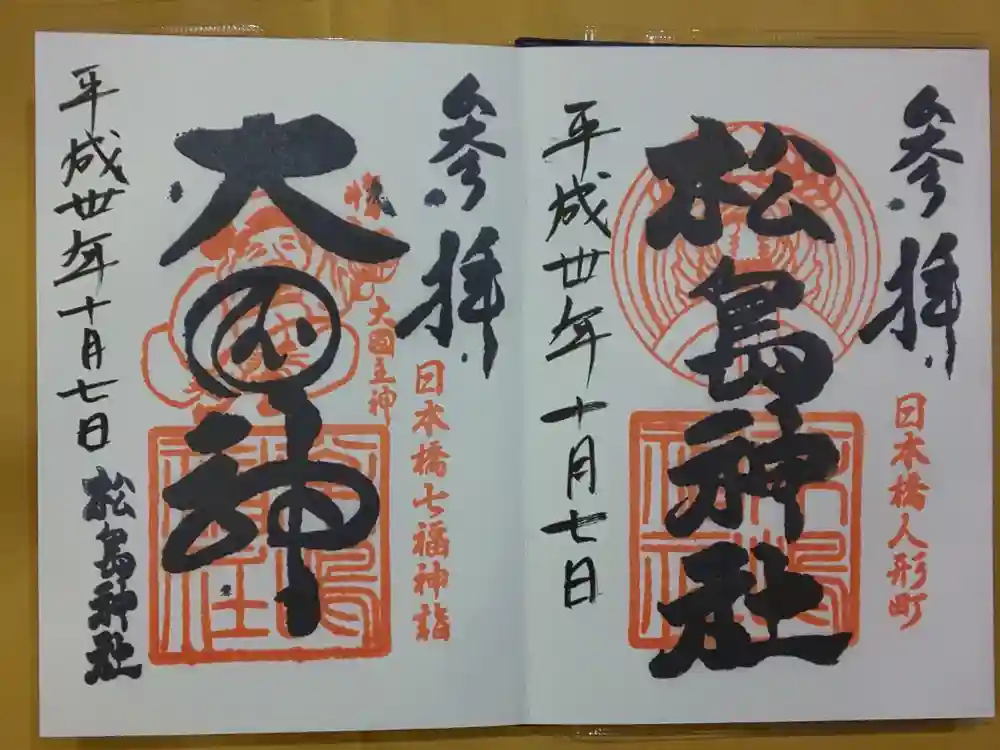 参拝
日本橋人形町
松島神社
平成卅年十月七日
参拝
日本橋七福神詣
大国主神
大国神
平成卅年十月七日
松島神社